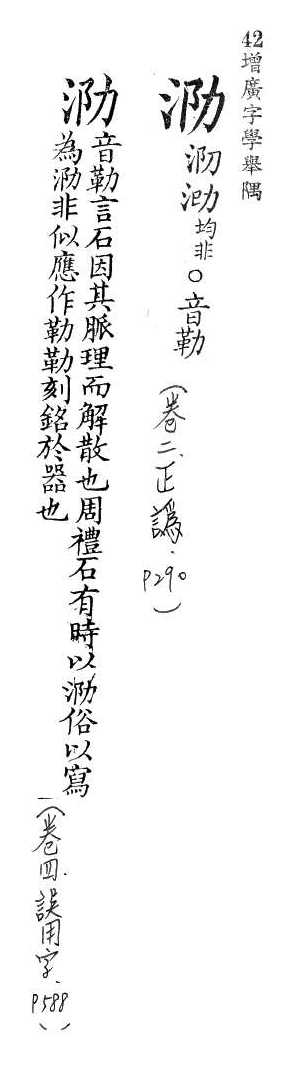 42增廣字學舉隅
泐 沕泑均非○音勒(卷二、正譌.P290)
泐 音勒言石因其脈理而解散也周禮石有時以泐俗以寫
為泐非似應作勒勒刻銘於器也(卷四.誤用字、P588)